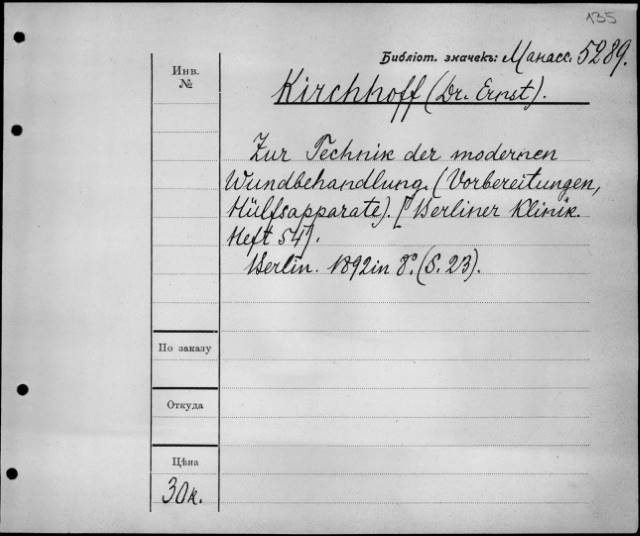 135
Библіот. значекъ: Манасс. 5289.
Инв.
№
Kirchhoff (Dr. Ernst).
Zur Technik der modernen
Wundbehandlung. (Vorbereitungen,
Hülfsapparate). [Berliner Klinik.
Heft 54].
Berlin. 1892 in 8°. (S. 23).
По заказу
Откуда
Цѣна
30 к.